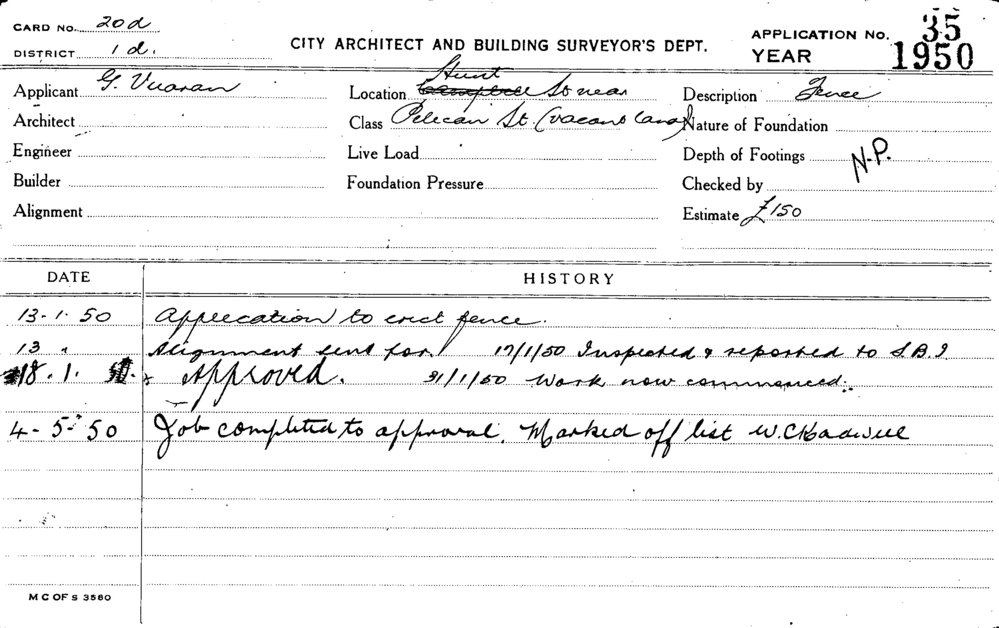 CARD No. 20d
DISTRICT 1d.
CITY ARCHITECT AND BUILDING SURVEYOR'S DEPT.
APPLICATION No. 35
YEAR 1950
Applicant G. Vuaran
Architect
Engineer
Builder
Alignment
Location Hunt St near
Class Pelican St. (vacant land)
Live Load
Foundation Pressure
Description Fence
Nature of Foundation
Depth of Footings N.P.
Checked by
Estimate £150
DATE HISTORY
13-1-50 Application to erect fence.
13 " Alignment sent for. 17/1/50 Inspected & reported to S.B.I
18.1. Approved. 31/1/50 Work now commenced.
4-5-50 Job completed to approval. Marked off list
M C OF S 3560